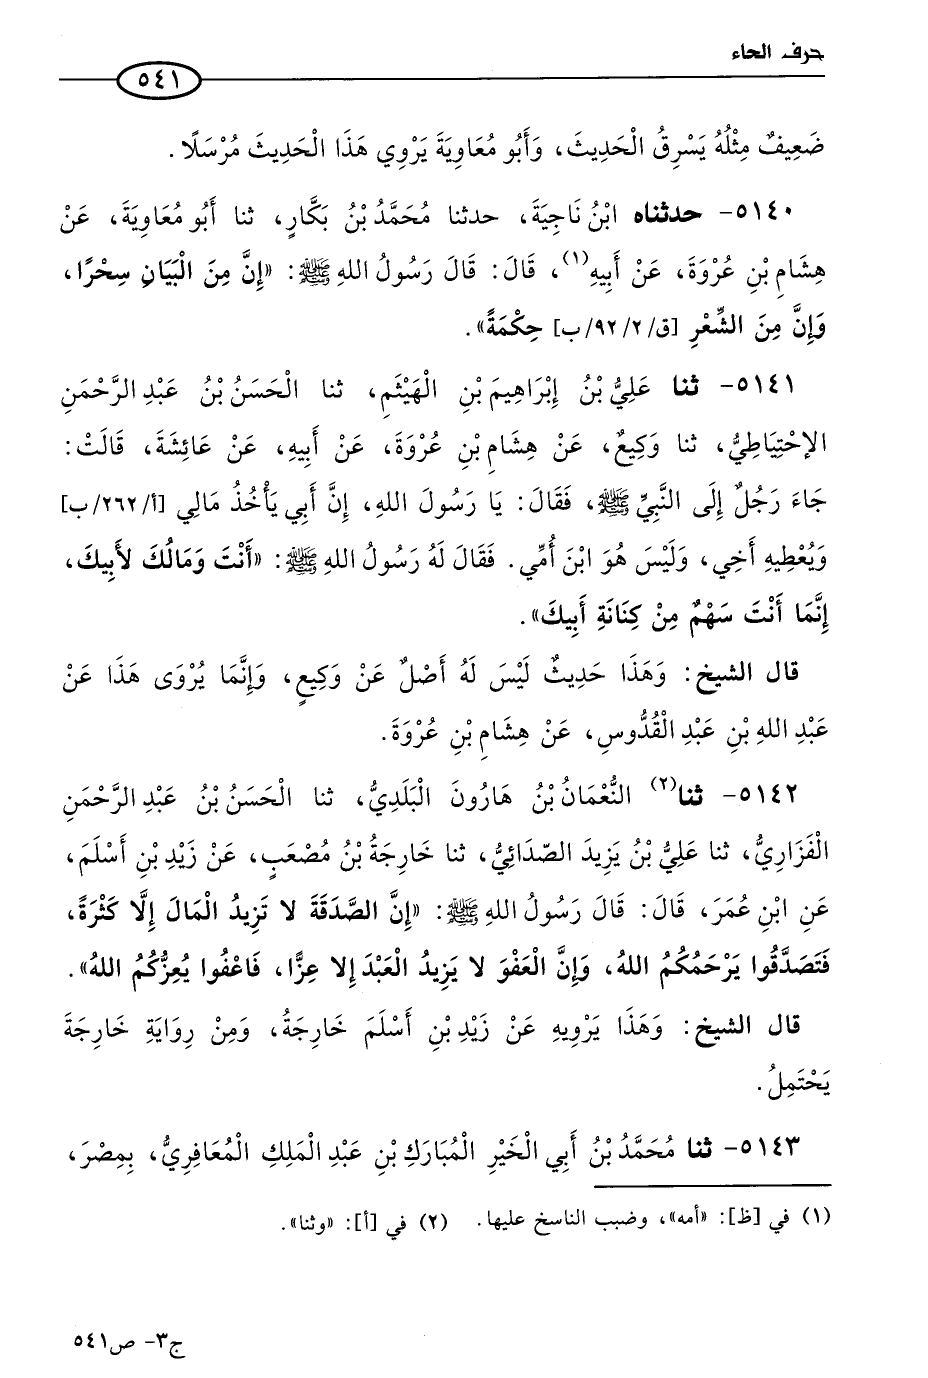 حرف الحاء
٥٤١
ضَعِيفٌ مِثْلُهُ يَسْرِقُ الْحَدِيثَ، وَأَبُو مُعَاوِيَةَ يَرْوِي هَذَا الْحَدِيثَ مُرْسَلًا.
٥١٤٠- حدثناه ابْنُ نَاجِيَةَ، حدثنا مُحَمَّدُ بْنُ بَكَّارٍ، ثنا أَبُو مُعَاوِيَةَ، عَنْ
هِشَامِ بْنِ عُرْوَةَ، عَنْ أَبِيهِ(١)، قَالَ: قَالَ رَسُولُ اللهِ ﷺ: «إِنَّ مِنَ الْبَيَانِ سِحْرًا،
وَإِنَّ مِنَ الشِّعْرِ [ق/٩٢/٢/ب] حِكْمَةً».
٥١٤١- ثنا عَلِيُّ بْنُ إِبْرَاهِيمَ بْنِ الْهَيْثَمِ، ثنا الْحَسَنُ بْنُ عَبْدِ الرَّحْمَنِ
الإحْتِيَاطِيُّ، ثنا وَكِيعٌ، عَنْ هِشَامِ بْنِ عُرْوَةَ، عَنْ أَبِيهِ، عَنْ عَائِشَةَ، قَالَتْ:
جَاءَ رَجُلٌ إِلَى النَّبِيِّ ﷺ، فَقَالَ: يَا رَسُولَ اللهِ، إِنَّ أَبِي يَأْخُذُ مَالِي [أ/٢٦٢/ب]
وَيُعْطِيهِ أَخِي، وَلَيْسَ هُوَ ابْنَ أُمِّي. فَقَالَ لَهُ رَسُولُ اللهِ ﷺ: «أَنْتَ وَمَالُكَ لأَبِيكَ،
إِنَّمَا أَنْتَ سَهْمٌ مِنْ كِنَانَةِ أَبِيكَ».
قال الشيخ: وَهَذَا حَدِيثٌ لَيْسَ لَهُ أَصْلٌ عَنْ وَكِيعٍ، وَإِنَّمَا يُرْوَى هَذَا عَنْ
عَبْدِ اللهِ بْنِ عَبْدِ الْقُدُّوسِ، عَنْ هِشَامِ بْنِ عُرْوَةَ.
٥١٤٢- ثنا(٢) النُّعْمَانُ بْنُ هَارُونَ الْبَلَدِيُّ، ثنا الْحَسَنُ بْنُ عَبْدِ الرَّحْمَنِ
الْفَزَارِيُّ، ثنا عَلِيُّ بْنُ يَزِيدَ الصّدَائِيُّ، ثنا خَارِجَةُ بْنُ مُصْعَبٍ، عَنْ زَيْدِ بْنِ أَسْلَمَ،
عَنِ ابْنِ عُمَرَ، قَالَ: قَالَ رَسُولُ اللهِ ﷺ: «إِنَّ الصَّدَقَةَ لا تَزِيدُ الْمَالَ إِلَّا كَثْرَةً،
فَتَصَدَّقُوا يَرْحَمُكُمُ اللهُ، وَإِنَّ الْعَفْوَ لا يَزِيدُ الْعَبْدَ إِلا عِزًّا، فَاعْفُوا يُعِزُّكُمُ اللهُ».
قال الشيخ: وَهَذَا يَرْوِيهِ عَنْ زَيْدِ بْنِ أَسْلَمَ خَارِجَةُ، وَمِنْ رِوَايَةِ خَارِجَةَ
يَحْتَمِلُ.
٥١٤٣- ثنا مُحَمَّدُ بْنُ أَبِي الْخَيْرِ الْمُبَارَكِ بْنِ عَبْدِ الْمَلِكِ الْمُعَافِرِيُّ، بِمِصْرَ،
(١) في [ظ]: «أمه»، وضبب الناسخ عليها. (٢) في [أ]: «وثنا».
ج٣- ص٥٤١